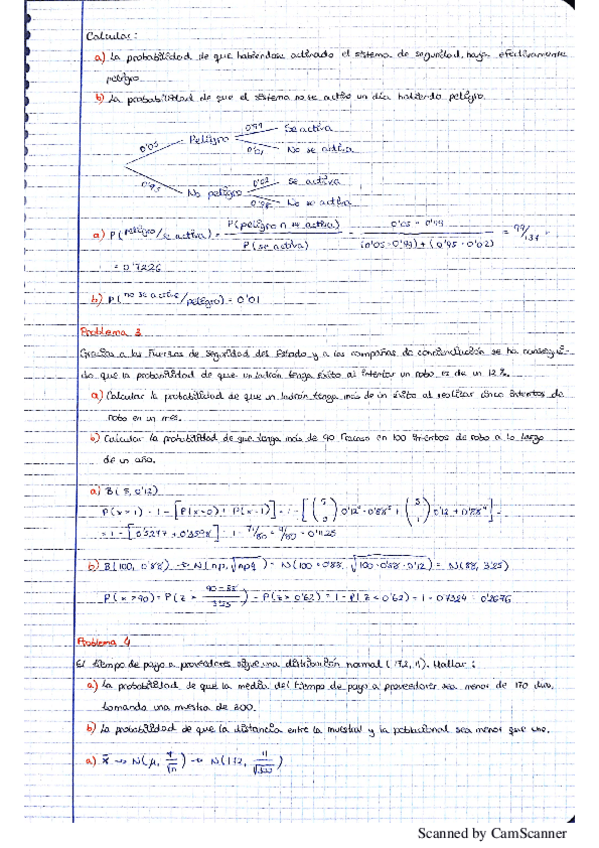 Calcular:
a) La probabilidad de que habiéndose activado el sistema de seguridad, haya efectivamente
peligro.
b) La probabilidad de que el sistema no se active un día habiendo peligro.
0'05 Peligro 0'99 Se activa
0'01 No se activa
0'95 No peligro 0'02 Se activa
0'98 No se activa
a) P(peligro/se activa) = P(peligro ∩ se activa) / P(se activa) = 0'05 · 0'99 / (0'05 · 0'99) + (0'95 · 0'02) = 99/137 =
= 0'7226
b) P(no se active/peligro) = 0'01
Problema 3
Gracias a las Fuerzas de Seguridad del Estado y a las campañas de se ha consegui-
do que la probabilidad de que un ladrón tenga éxito al intentar un robo es de un 12%.
a) Calcular la probabilidad de que un ladrón tenga más de un éxito al realizar cinco intentos de
robo en un mes.
b) Calcular la probabilidad de que tenga más de 90 fracaso en 100 intentos de robo a lo largo
de un año.
a) B(5, 0'12)
P(x>1) = 1 - [P(x=0) + P(x=1)] = 1 - [(5 0) 0'12⁰ · 0'88⁵ + (5 1) 0'12 + 0'88⁴] =
= 1 - [0'5277 + 0'3598] = 1 - 71/80 = 9/80 = 0'1125
b) B(100, 0'88) → N(np, √npq) = N(100 · 0'88, √100 · 0'88 · 0'12) = N(88, 3'25)
P(x>90) = P(z > 90-88 / 3'25) = P(z > 0'62) = 1 - P(z < 0'62) = 1 - 0'7324 = 0'2676
Problema 4
El tiempo de pago a proveedores sigue una distribución normal (172, 11). Hallar:
a) La probabilidad de que la media del tiempo de pago a proveedores sea menor de 170 días,
tomando una muestra de 300.
b) La probabilidad de que la distancia entre la muestral y la poblacional sea menor que uno.
a) x̄ → N(μ, σ/√n) → N(172, 11/√300)
Scanned by CamScanner